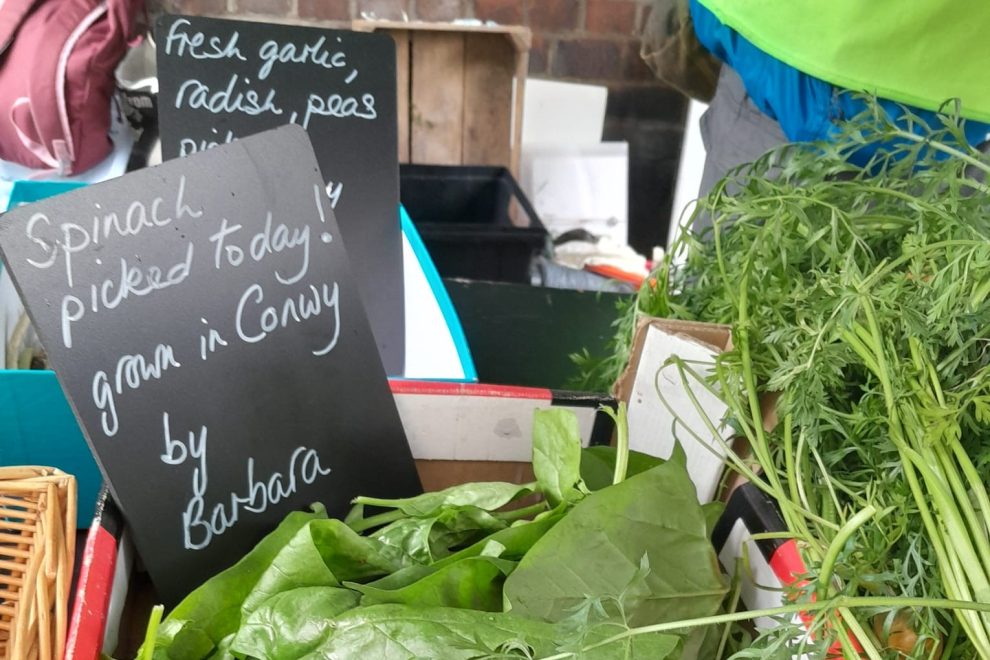 Fresh garlic,
radish, peas
Spinach
picked today!
grown in Conwy
by
Barbara